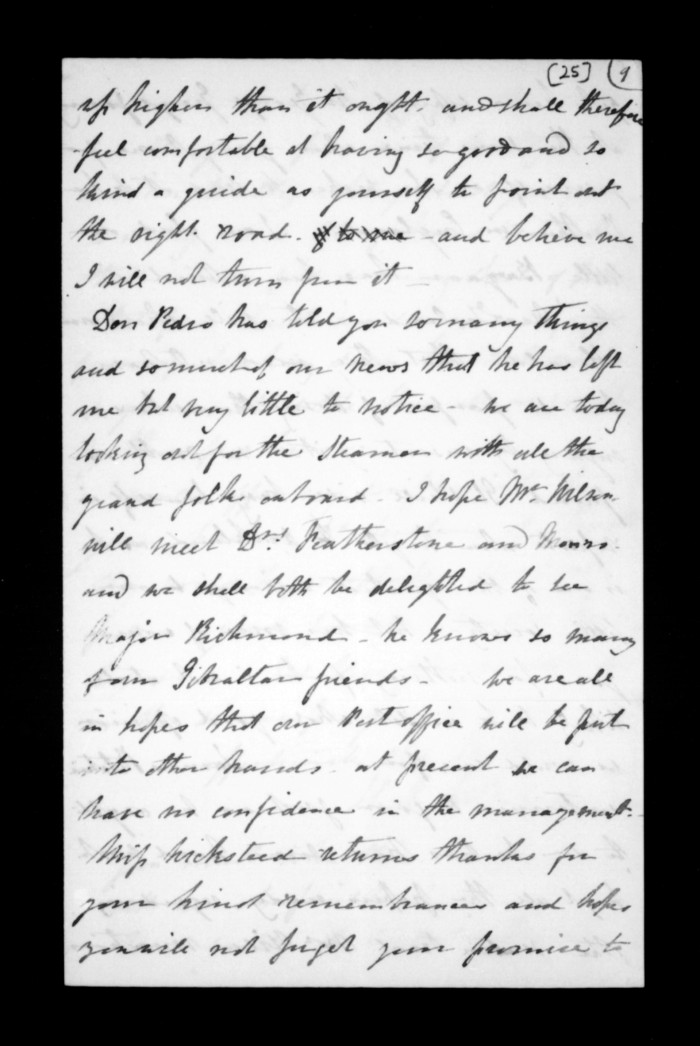 [25] 9
up higher than it ought. and shall therefore
feel comfortable at having so good and so
kind a guide as yourself to point out
the right road. - and believe me
I will not turn from it -
Don Pedro has told you so many things
and so much of our News that he has left
me but very little to notice - we are today
looking out for the Steamer with all the
grand folks onboard. I hope Mr. Wilson
will meet Drs. Featherstone and Monro.
and we shall both be delighted to see
Major Richmond - he knows so many
of our Gibraltar friends - We are all
in hopes that our Post office will be put
into other hands. at present we can
have no confidence in the management.
Miss Wicksteed returns thanks for
your kind remembrances and hopes
you will not forget your promise to